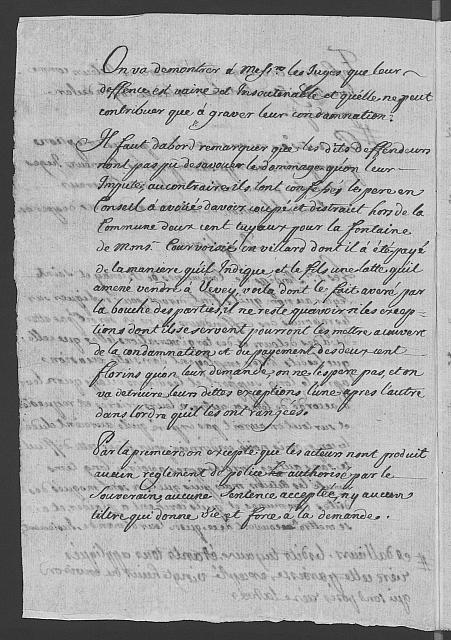 On va demontrer à Mess.rs les Juges que leur
deffence est vaine et Insoutenable et qu'elle ne peut
contribuer que à graver leur condamnation.
Il faut dabord remarquer que les dits deffendeurs
n'ont pas pû desavouer le dommage qu'on leur
Impute, au contraire ils l'ont confessés le pere en
Conseil à avoüé davoir coupé et distrait hors de la
Commune deux cent tuyaux pour la fontaine
de Mons. Courvoisié en villard dont il à été payé
de la maniere qu'il Indique, et le fils une latte qu'il
amené vendre à Vevey, voila dont le fait averé par
la bouche des parties, il ne reste qu'a voir si les excep-
tions dont ils se servent pourront les mettre a couvert
de la condamnation et du payement des deux cent
florins qu'on leur demande, on ne l'espere pas, et on
va detruire leurs dettes exceptions l'une apres l'autre
dans l'ordre qu'il les ont
Par la premier on excepte que les acteurs n'ont produit
aucun reglement de police authorisé par le
Souverain, aucune Sentence acceptée, ny aucun
titre qui donne vie et force à la demande.